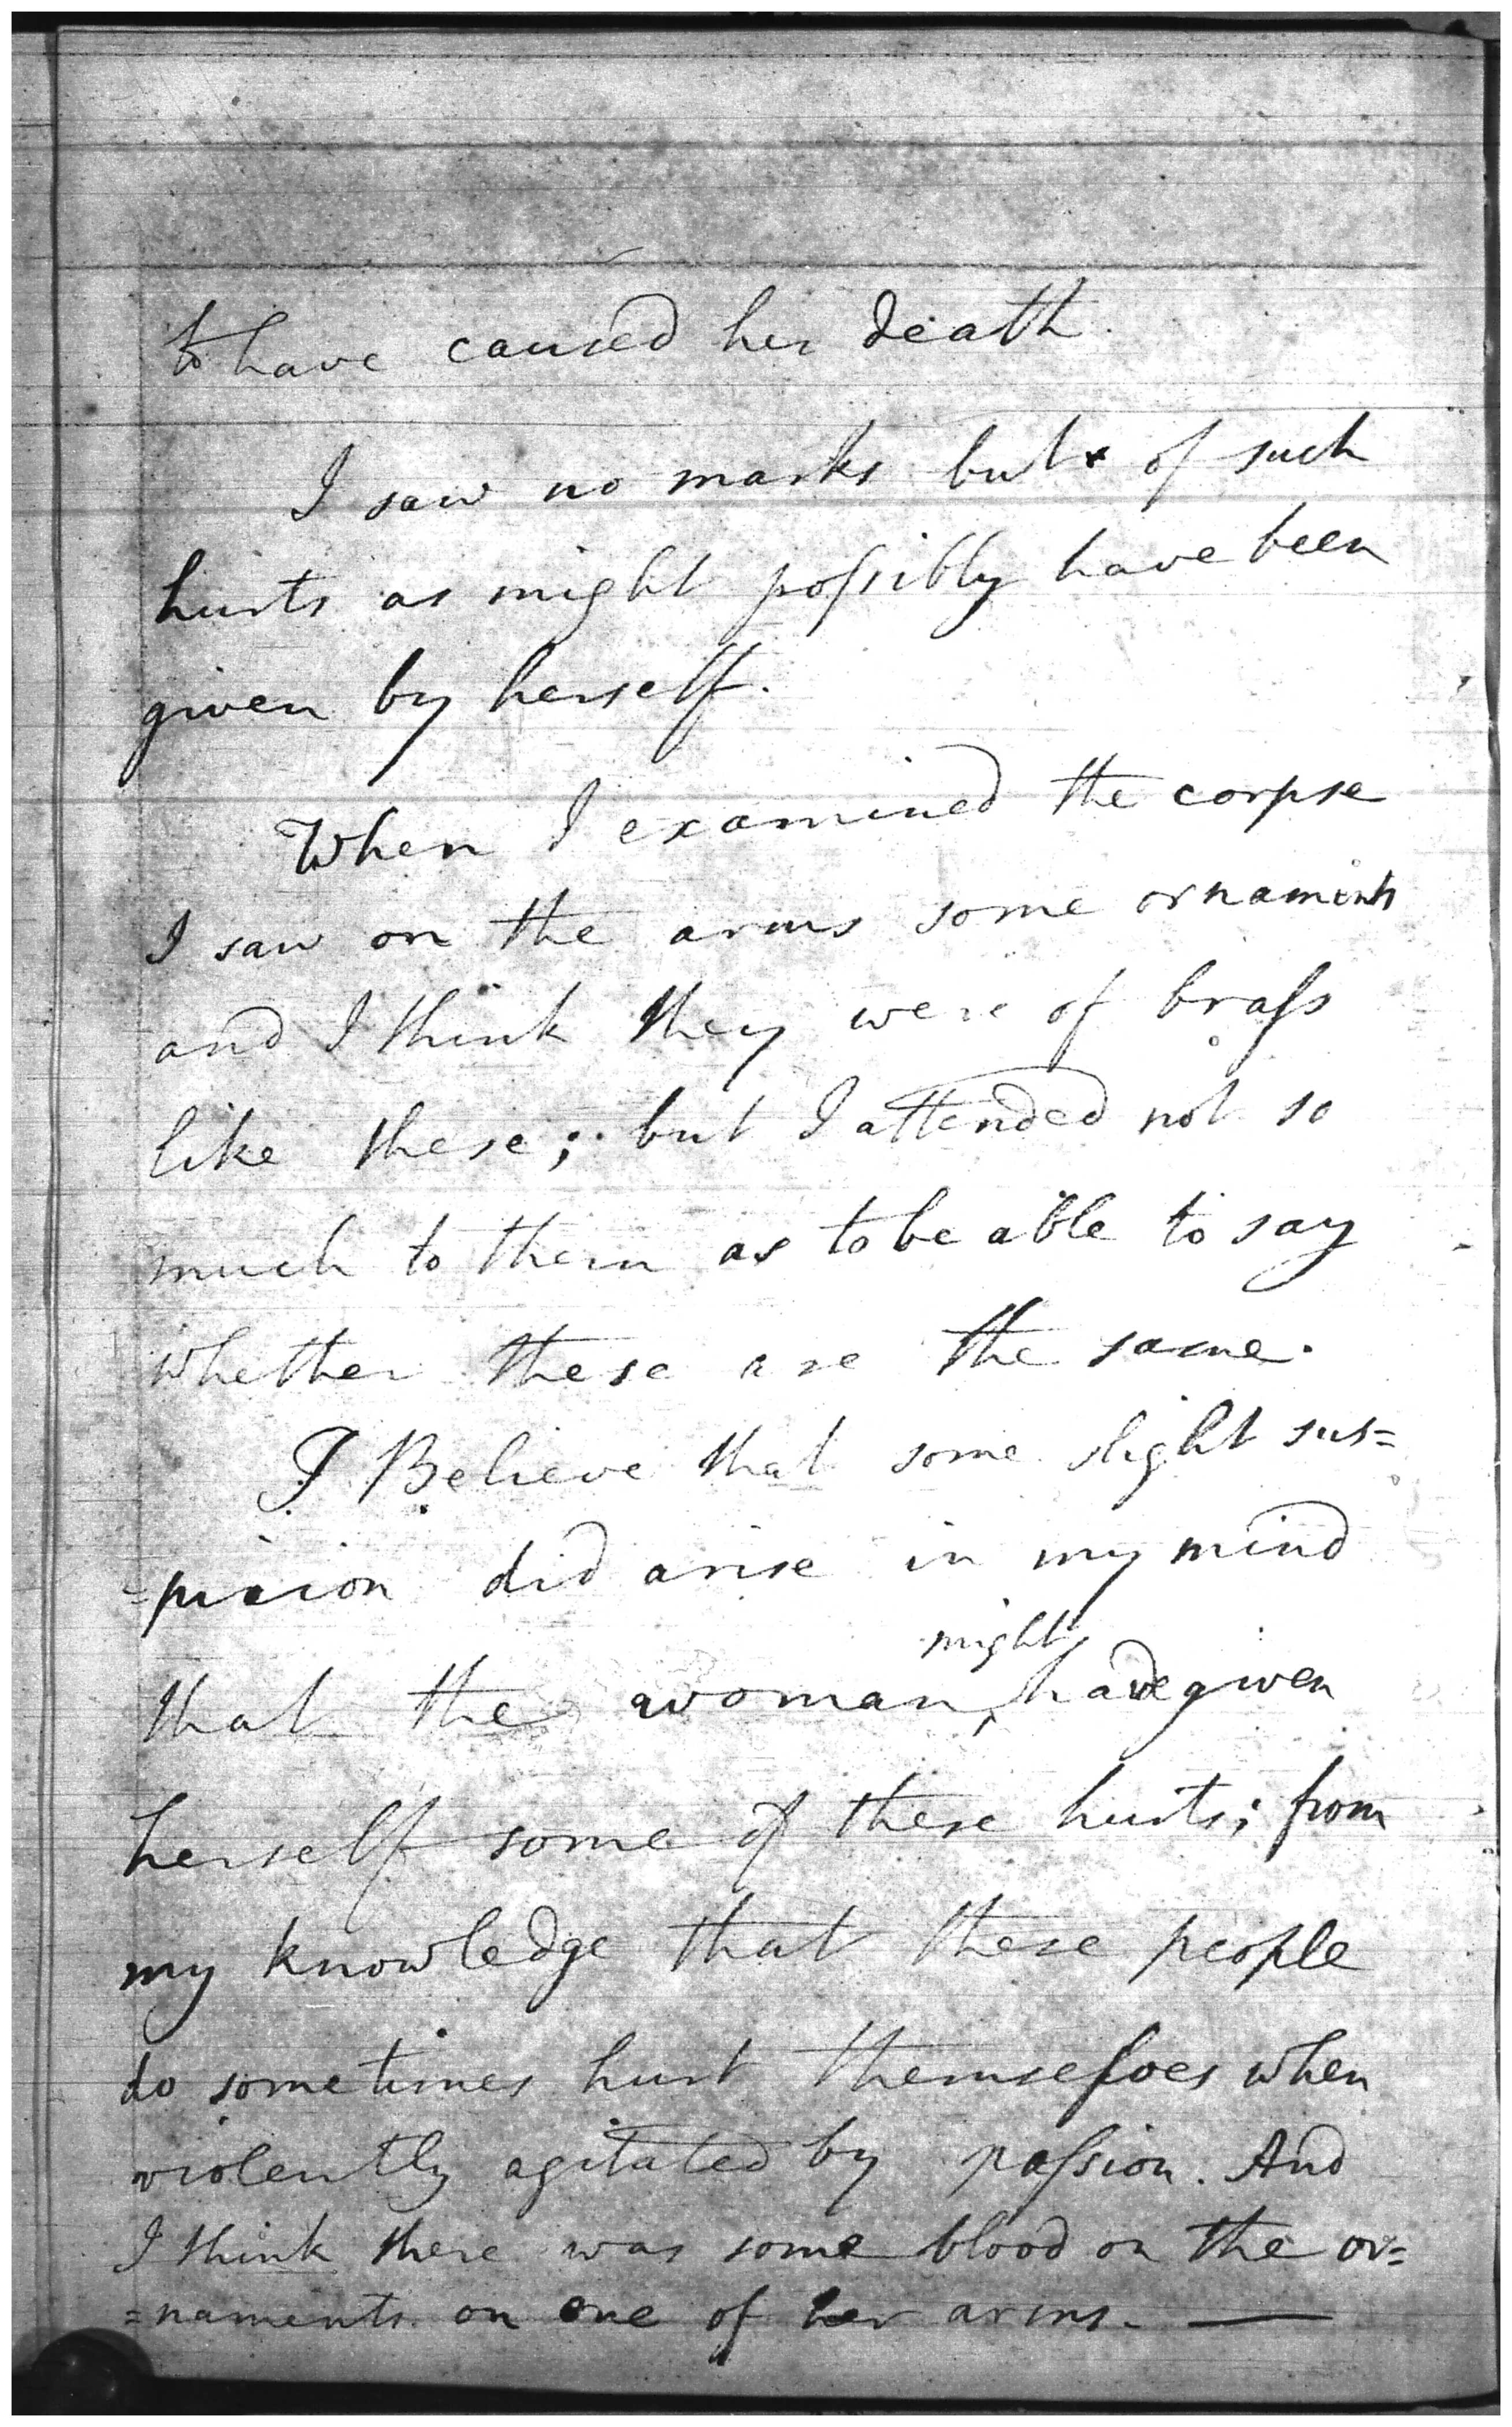 to have caused her death.
I saw no marks but of such
hurts as might poſsibly have been
given by herself.
When I examined the corpse
I saw on the arms some ornaments
and I think they were of braſs
like these; but I attended not so
much to them as to be able to say
whether these are the same.
I Believe that some slight sus=
=picion did arise in my mind
might
that the woman, have given
herself some of these hurts; from
my knowledge that these people
do sometimes hurt themselves when
violently agitated by paſsion. And
I think there was some blood on the or=
=naments on one of her arms. —